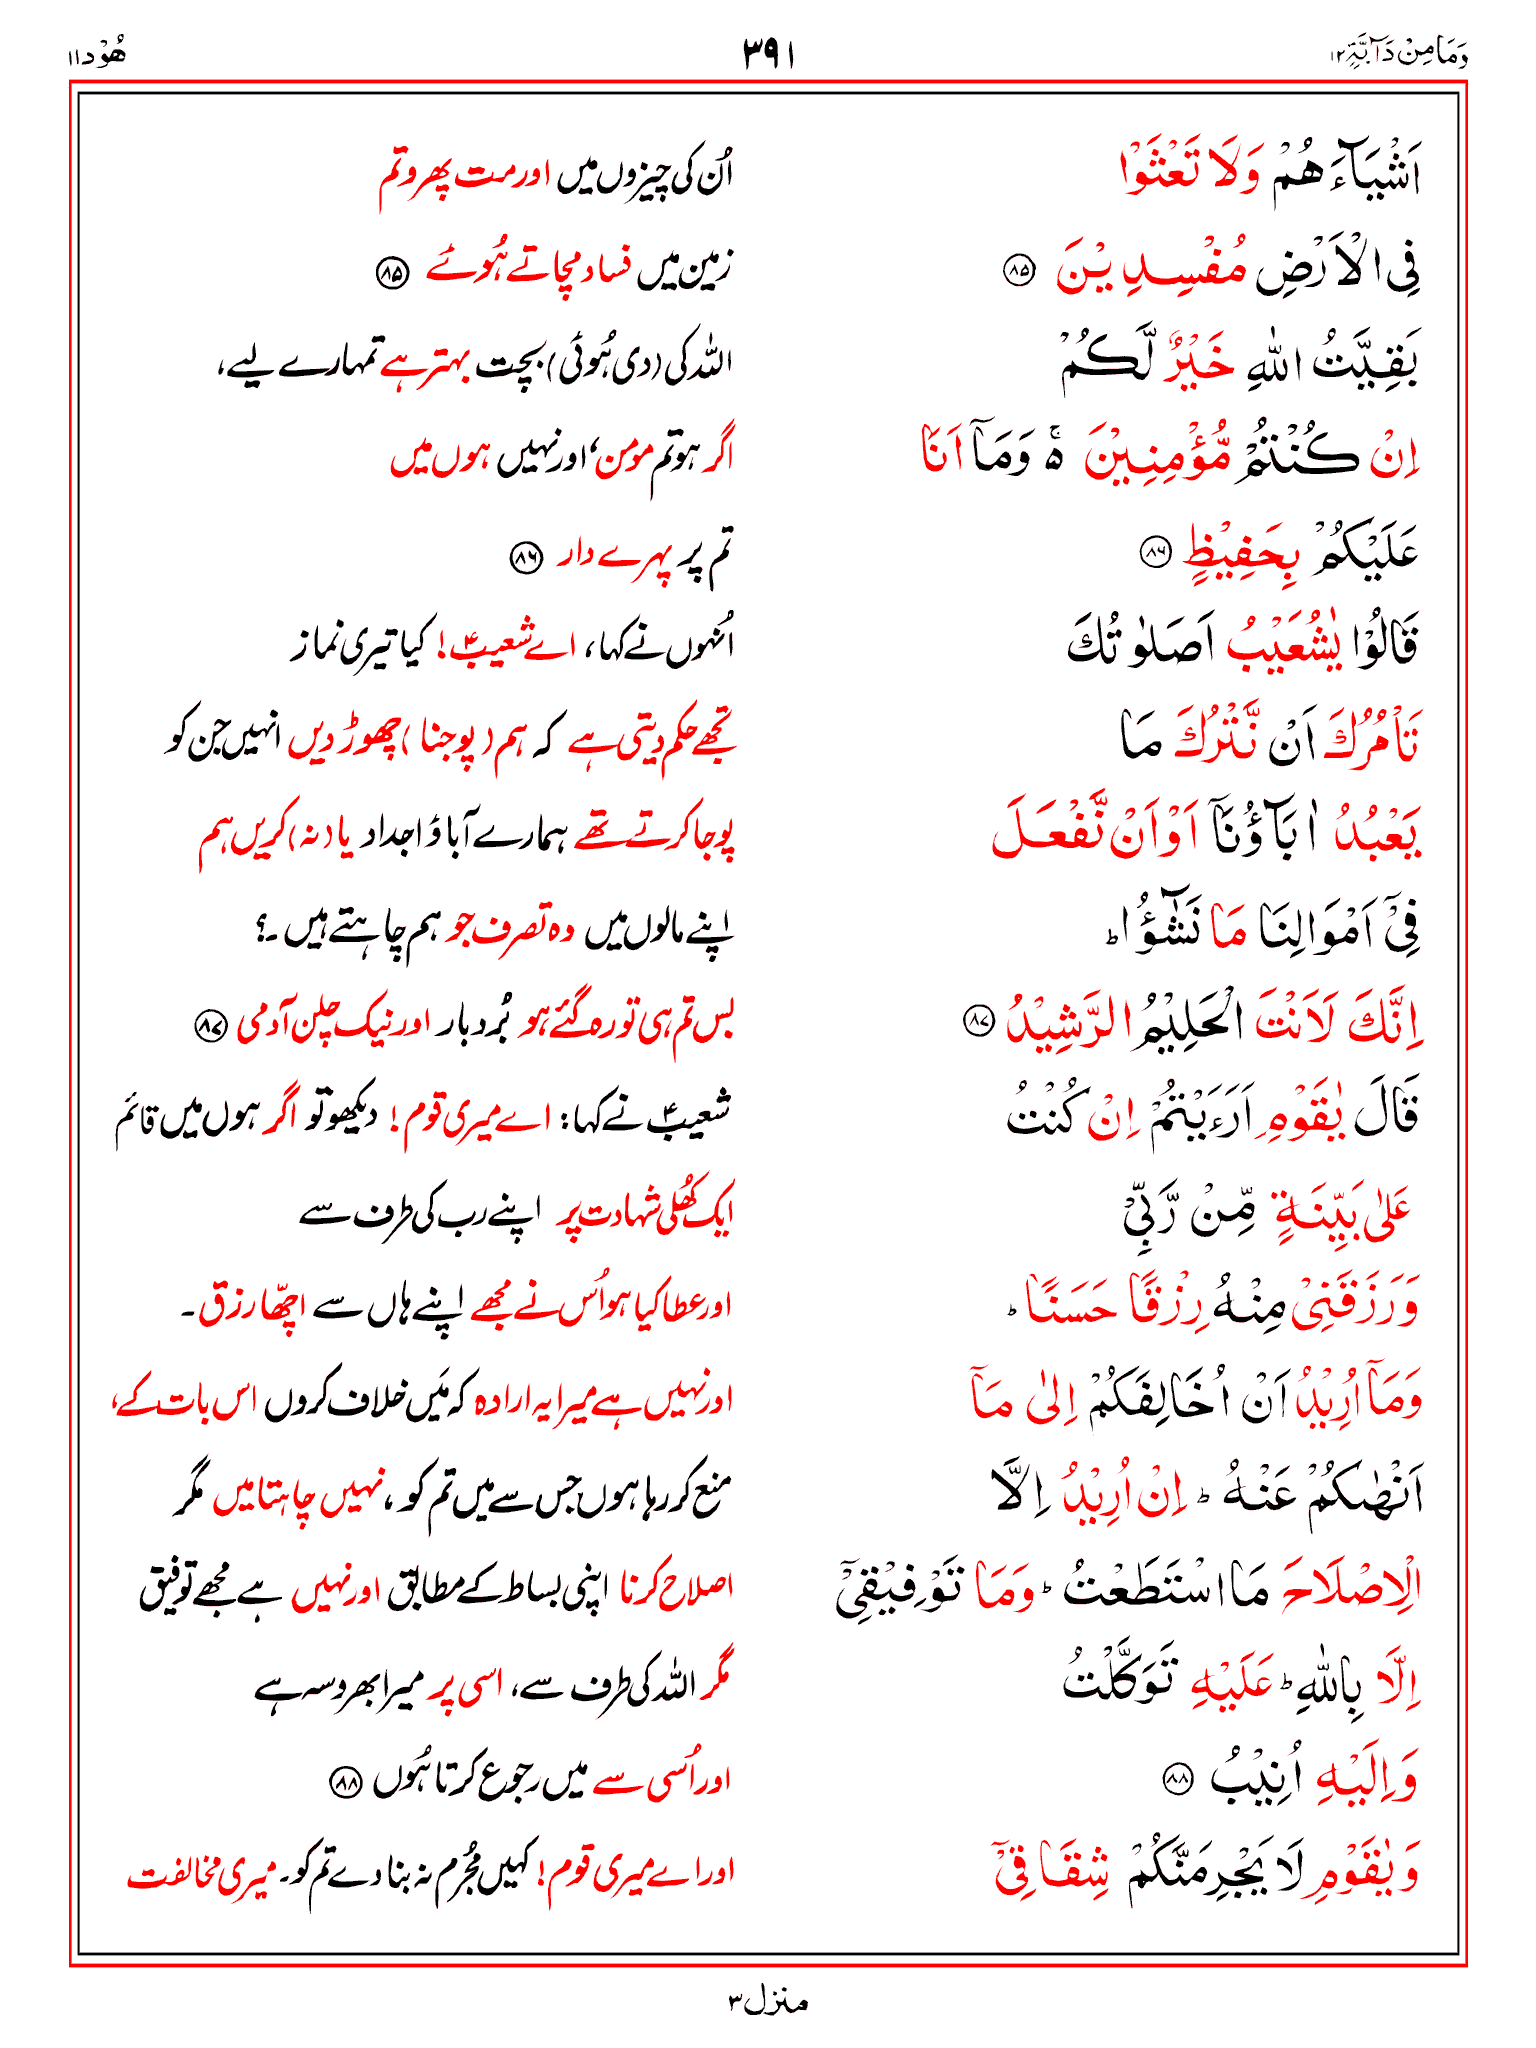 وَمَا مِنْ دَآبَّةٍ ۱۲ ۳۹۱ هُوْد ۱۱
اَشْیَآءَهُمْ وَلَا تَعْثَوْا اُن کی چیزوں میں اور مت پھرو تم
فِی الْاَرْضِ مُفْسِدِیْنَ ۸۵ زمین میں فساد مچاتے ہُوئے ۸۵
بَقِیَّتُ اللّٰهِ خَیْرٌ لَّكُمْ اللہ کی (دی ہُوئی) بچت بہتر ہے تمہارے لیے،
اِنْ كُنْتُمْ مُّؤْمِنِیْنَ ۵ۚ وَمَاۤ اَنَا اگر ہو تم مومن‘ اور نہیں ہوں میں
عَلَیْكُمْ بِحَفِیْظٍ ۸۶ تم پر پہرے دار ۸۶
قَالُوْا یٰشُعَیْبُ اَصَلٰوتُكَ اُنہوں نے کہا، اے شعیبؑ! کیا تیری نماز
تَاْمُرُكَ اَنْ نَّتْرُكَ مَا تجھے حکم دیتی ہے کہ ہم (پوجنا) چھوڑ دیں انہیں جن کو
یَعْبُدُ اٰبَآؤُنَاۤ اَوْ اَنْ نَّفْعَلَ پوجا کرتے تھے ہمارے آباؤ اجداد یا (نہ) کریں ہم
فِیْۤ اَمْوَالِنَا مَا نَشٰٓؤُا ؕ اپنے مالوں میں وہ تصرف جو ہم چاہتے ہیں ۔؟
اِنَّكَ لَاَنْتَ الْحَلِیْمُ الرَّشِیْدُ ۸۷ بس تم ہی تو رہ گئے ہو بُردبار اور نیک چلن آدمی ۸۷
قَالَ یٰقَوْمِ اَرَءَیْتُمْ اِنْ كُنْتُ شعیبؑ نے کہا: اے میری قوم! دیکھو تو اگر ہوں میں قائم
عَلٰی بَیِّنَةٍ مِّنْ رَّبِّیْ ایک کھُلی شہادت پر اپنے رب کی طرف سے
وَرَزَقَنِیْ مِنْهُ رِزْقًا حَسَنًا ؕ اور عطا کیا ہو اُس نے مجھے اپنے ہاں سے اچھّا رزق۔
وَمَاۤ اُرِیْدُ اَنْ اُخَالِفَكُمْ اِلٰی مَاۤ اور نہیں ہے میرا یہ ارادہ کہ مَیں خلاف کروں اس بات کے،
اَنْهٰىكُمْ عَنْهُ ؕ اِنْ اُرِیْدُ اِلَّا منع کر رہا ہوں جس سے میں تم کو، نہیں چاہتا میں مگر
الْاِصْلَاحَ مَا اسْتَطَعْتُ ؕ وَمَا تَوْفِیْقِیْۤ اصلاح کرنا اپنی بساط کے مطابق اور نہیں ہے مجھے توفیق
اِلَّا بِاللّٰهِ ؕ عَلَیْهِ تَوَكَّلْتُ مگر اللہ کی طرف سے، اسی پر میرا بھروسہ ہے
وَاِلَیْهِ اُنِیْبُ ۸۸ اور اُسی سے میں رجوع کرتا ہُوں ۸۸
وَیٰقَوْمِ لَا یَجْرِمَنَّكُمْ شِقَاقِیْۤ اور اے میری قوم! کہیں مُجرم نہ بنا دے تم کو۔ میری مخالفت
منزل ۳